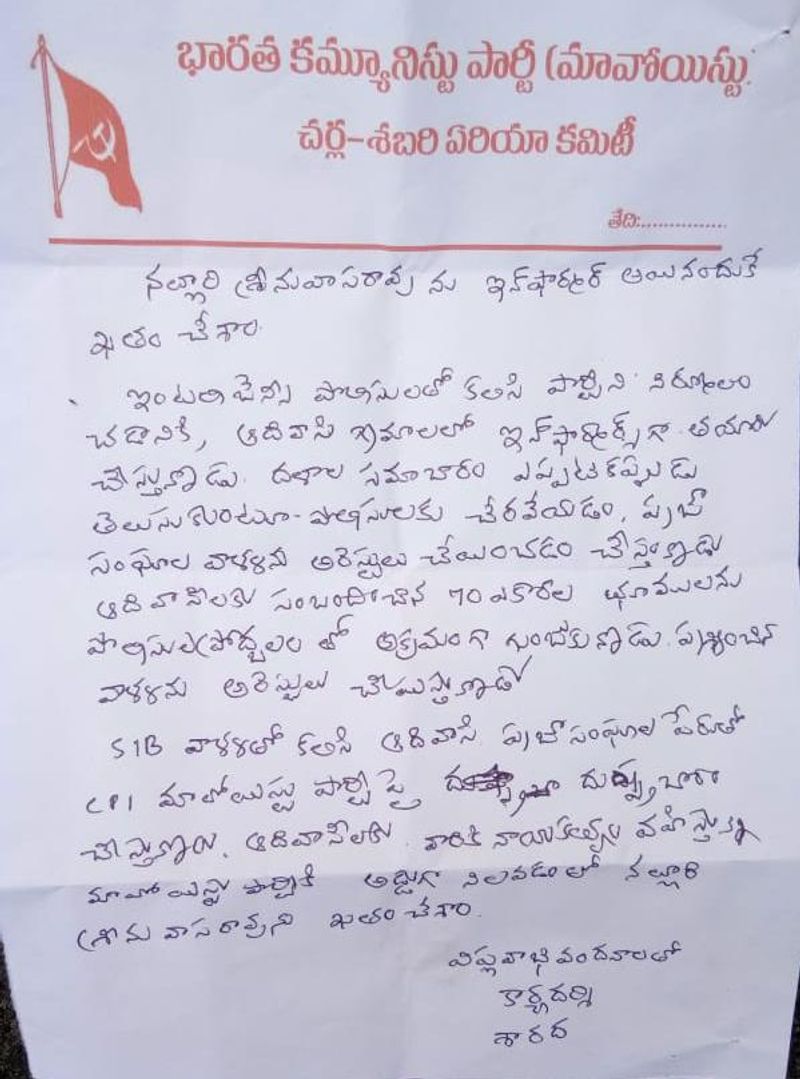 భారత కమ్యూనిస్టు పార్టీ (మావోయిస్టు
చర్ల-శబరి ఏరియా కమిటీ
తేది:...............
నల్లూరి శ్రీనువాసరావు ను ఇన్‌ఫార్మర్ అయినందుకే
ఖతం చేశాం.
ఇంటలిజెన్సి పొలిసులతో కలిసి పార్టీని నిర్మూలం
చడానికి, ఆదివాసి గ్రామాలలో ఇన్‌ఫార్మర్స్‌గా తయారు
చేస్తున్నాడు. దళాల సమాచారం ఎప్పటికప్పుడు
తెలుసుకుంటూ - పొలిసులకు చేరవేయడం, ప్రజా
సంఘాల వాళళను అరెస్టులు చేయించడం చేస్తున్నాడు
ఆదివాసీలకు సంబందించిన 70 ఎకరాల భూములను
పొలిసుల ప్రోద్బలం తో అక్రమంగా గుంజుకున్నాడు. ప్రశ్నించిన
వాళళను అరెస్టులు చేయిస్తున్నాడు
SIB వాళళతో కలిసి ఆదివాసి ప్రజాసంఘాల పేరుతో
CPI మావోయిస్టు పార్టీ పై దుష్ప్రచారం
చేస్తున్నాడు. ఆదివాసీలకు వారికి నాయకత్వం వహిస్తున్న
మావోయిస్టు పార్టీకి అడ్డుగా నిలవడంలో నల్లూరి
శ్రీనువాసరావుని ఖతం చేశాం.
విప్లవాభివందనాలతో
కార్యదర్శి
శారద